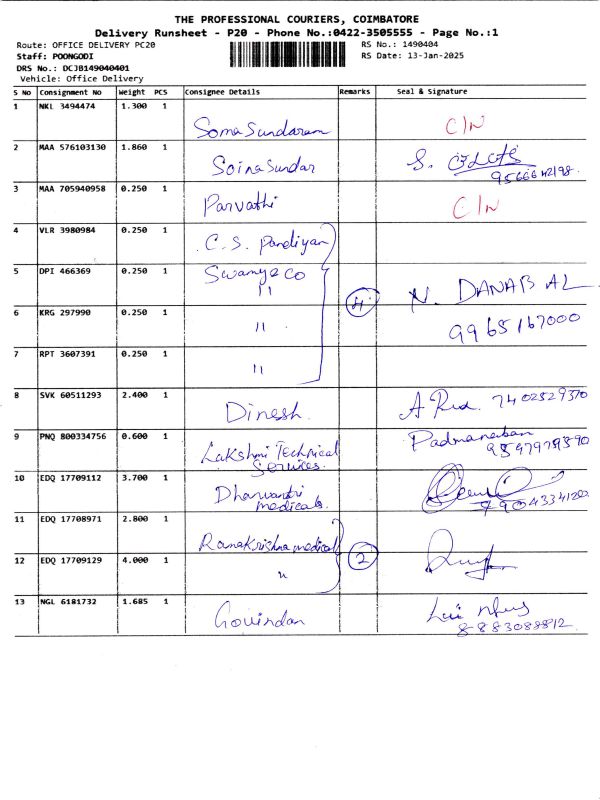 THE PROFESSIONAL COURIERS, COIMBATORE
Delivery Runsheet - P20 - Phone No.:0422-3505555 - Page No.:1
Route: OFFICE DELIVERY PC20
RS No.: 1490404
Staff: POONGODI
RS Date: 13-Jan-2025
DRS No.: DCJB149040401
Vehicle: Office Delivery
S No Consignment No Weight PCS Consignee Details Remarks Seal & Signature
1 NKL 3494474 1.300 1
Somasundaram C/N
2 MAA 576103130 1.860 1
Soinasundar S.
9566642198
3 MAA 705940958 0.250 1
Parvathi C/N
4 VLR 3980984 0.250 1
C. S. Pandiyan
5 DPI 466369 0.250 1
Swamy & co
" 4 N. DANABAL
6 KRG 297990 0.250 1
" 9965167000
7 RPT 3607391 0.250 1
"
8 SVK 60511293 2.400 1
Dinesh. A 7402529370
9 PNQ 800334756 0.600 1
Padmanaban
Lakshmi Technical
Services.
10 EDQ 17709112 3.700 1
medicals.
11 EDQ 17708971 2.800 1
Ramakrishna medical
12 EDQ 17709129 4.000 1
" 2
13 NGL 6181732 1.685 1
Govindan
8883088812